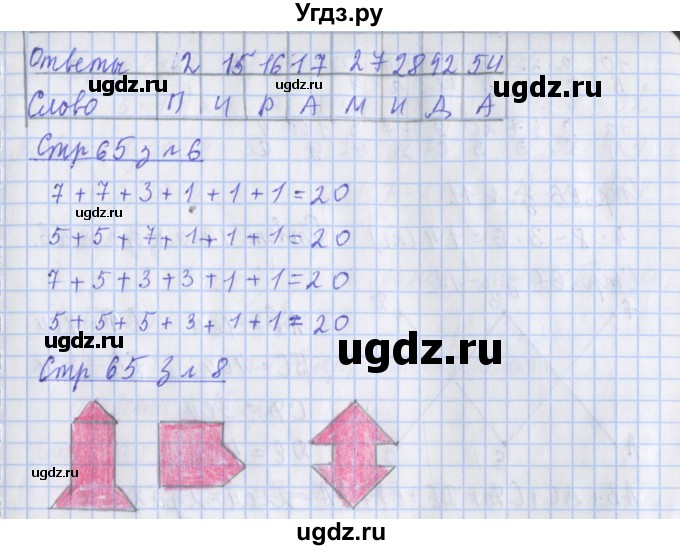 Угдз.ру
Ответы 12 15 16 17 27 28 42 54
Слово П И Р А М И Д А
Стр 65 з л 6
7 + 7 + 3 + 1 + 1 + 1 = 20
5 + 5 + 7 + 1 + 1 + 1 = 20
7 + 5 + 3 + 3 + 1 + 1 = 20
5 + 5 + 5 + 3 + 1 + 1 = 20
Стр 65 з л 8
ugdz.ru
ugdz.ru
ugdz.ru
ugdz.ru
ugdz.ru
ugdz.ru
ugdz.ru
ugdz.ru
ugdz.ru